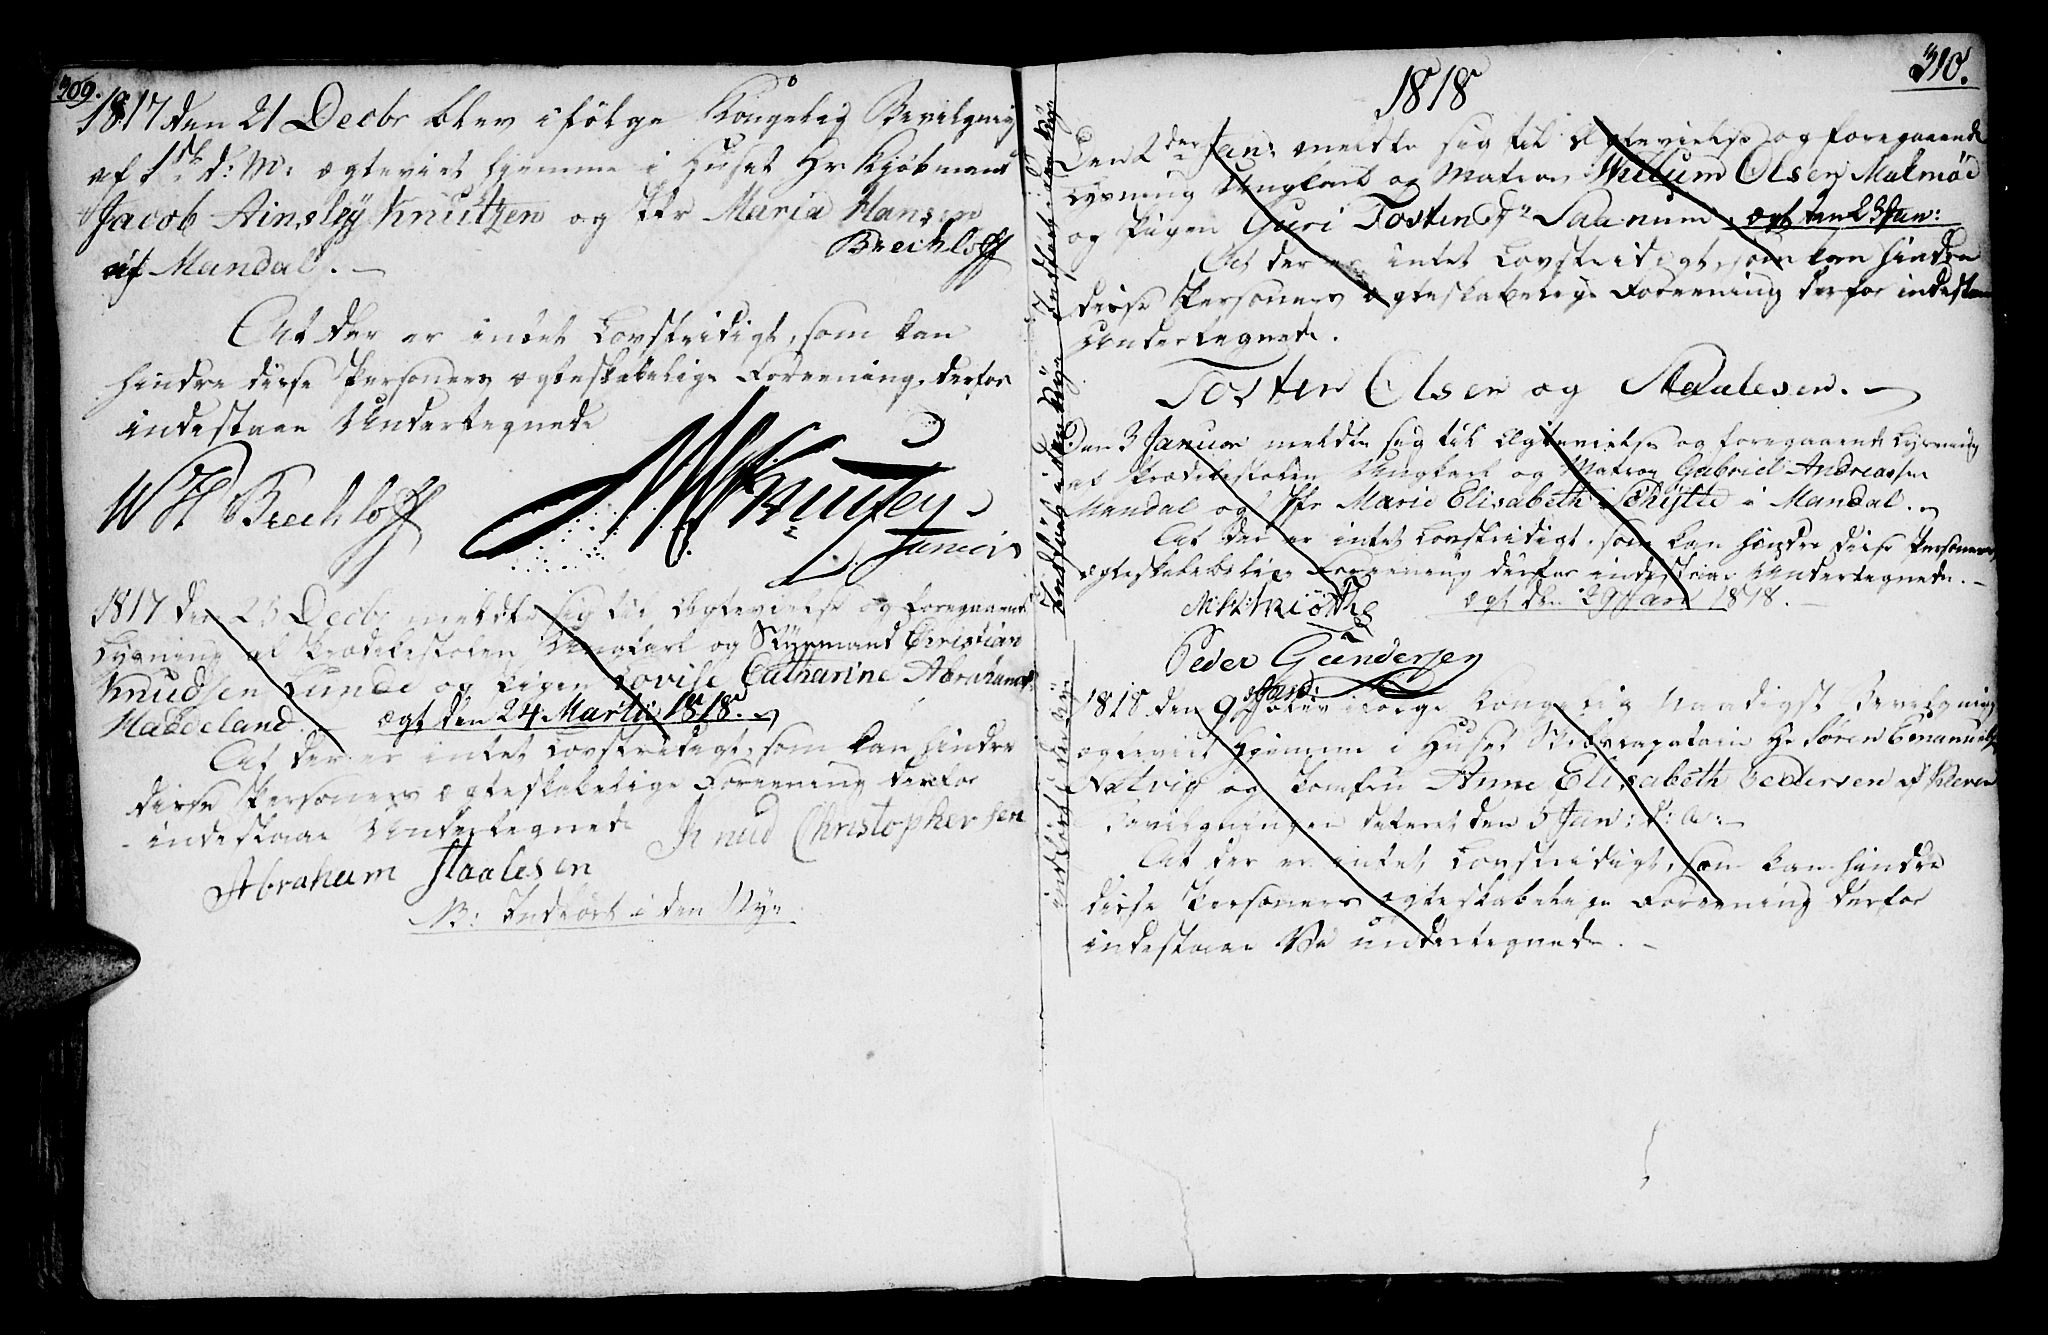 309.
1817 den 21 Decbr blev ifölge Kongelig Bevilgning
af 1ste d: M: ægteviet hjemme i Huset Hr Kjøbmand
Jacob Ainsley Knutzen og Jfr Maria Hansen
Brechloff
af Mandal. -
At der er intet Lovstridigt, som kan
hindre disse Personers ægteskabelige Foreening, derfor
indestaae Undertegnede
W H Brechloff
Knutzen
Junior
1817 den 23 Decbr meldte sig til Ægtevielse og foregaaende
Lysning af Prædikestolen Ungkarl og Styrmand Christian
Knudsen Lunde og Pigen Lovise Catharine Abrahamsd:
Haddeland. - ægt den 24 Martii 1818.
At der er intet Lovstridigt, som kan hindre
disse Personers ægteskabelige Foreening derfor
indestaae Undertegnede Knud Christophersen
Abraham Staalesen
NB: Indført i den Nye
310.
1818
Den 2den Jan: meldte sig til Ægtevielse og foregaaende
Lysning Ungkarl og Matros Willum Olsen Malmöe
og Pigen Guri Tostend Saanum, ægt den 23 Jan:
At der er intet Lovstridigt, som kan hindre
disse Personers ægteskabelige Foreening derfor indestaae
Undertegnede.
Tosten Olsen og Staalesen. -
Den 3 Januar meldte sig til Ægtevielse og foregaaende Lysning
af Prædikestolen Ungkarl og Matros Gabriel Andreassen
Mandal og Jfr Marie Elisabeth Schistte i Mandal.
At der er intet Lovstridigt, som kan hindre disse Personers
ægteskabelige Foreening derfor indestaae Undertegnede. -
ægt den 29 Jan 1818. -
Peder Gundersen
1818 den 9 Jan: blev ifølge Kongelig Naadigst Bevilgning
ægteviet hjemme i Huset Skibscapitain Hr Sören Emanuelsen
Natvig og Jomfru Anne Elisabeth Pedersen af Kleven
Bevilgningen dateret den 5 Jan: d: A: -
At der er intet Lovstridigt, som kan hindre
disse Personers ægteskabelige Foreening derfor
indestaae Vi undertegnede. -
Indført i den Nye
Indført i den Nye
indført i den Nye